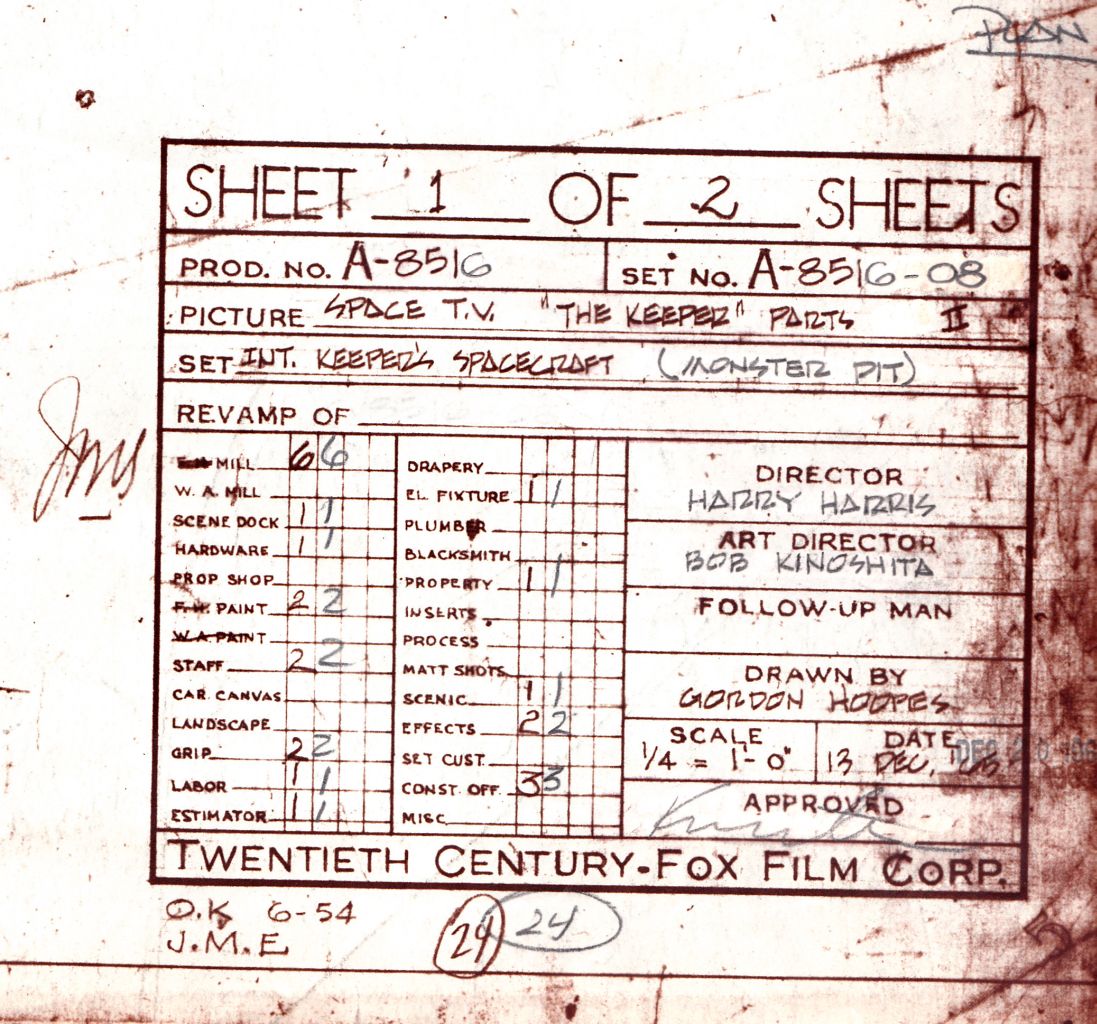 PLAN
SHEET 1 OF 2 SHEETS
PROD. NO. A-8516
SET NO. A-8516-08
PICTURE SPACE T.V. "THE KEEPER" PARTS II
SET INT. KEEPER'S SPACECRAFT (MONSTER PIT)
REVAMP OF
MILL 6 6
W. A. MILL
SCENE DOCK 1 1
HARDWARE 1 1
PROP SHOP
F.H. PAINT 2 2
W.A. PAINT
STAFF 2 2
CAR. CANVAS
LANDSCAPE
GRIP 2 2
LABOR 1 1
ESTIMATOR 1 1
DRAPERY
EL. FIXTURE 1 1
PLUMBER
BLACKSMITH
PROPERTY 1 1
INSERTS
PROCESS
MATT SHOTS
SCENIC 1 1
EFFECTS 2 2
SET CUST.
CONST. OFF. 3 3
MISC.
DIRECTOR
HARRY HARRIS
ART DIRECTOR
BOB KINOSHITA
FOLLOW-UP MAN
DRAWN BY
GORDON HOOPES
SCALE
1/4 = 1'-0"
DATE
13 DEC, '65
DEC 20
APPROVED
TWENTIETH CENTURY-FOX FILM CORP.
O.K 6-54
J.M.E
24 24